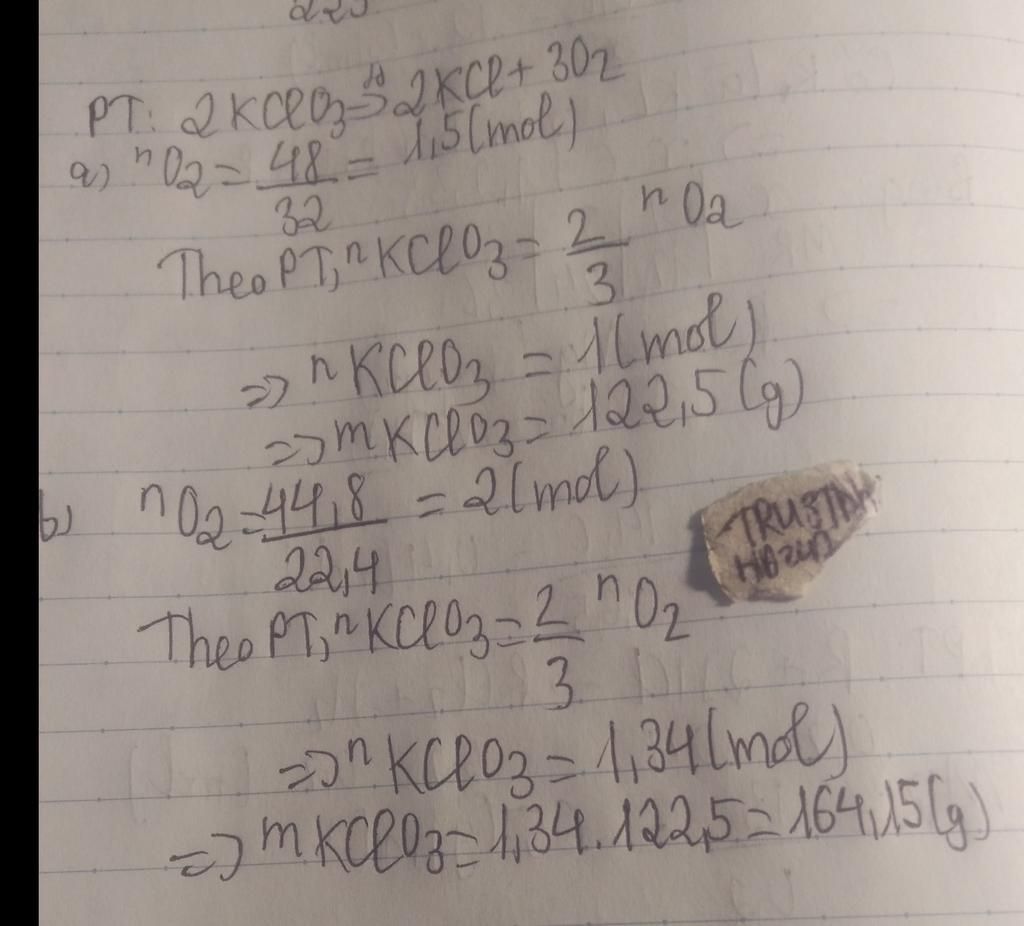 PT: 2KClO3 => 2KCl + 3O2
a) nO2 = 48/32 = 1,5(mol)
Theo PT, nKClO3 = 2/3 nO2
=> nKClO3 = 1(mol)
=> mKClO3 = 122,5(g)
b) nO2 = 44,8/22,4 = 2(mol)
Theo PT, nKClO3 = 2/3 nO2
=> nKClO3 = 1,34(mol)
=> mKClO3 = 1,34.122,5 = 164,15(g)